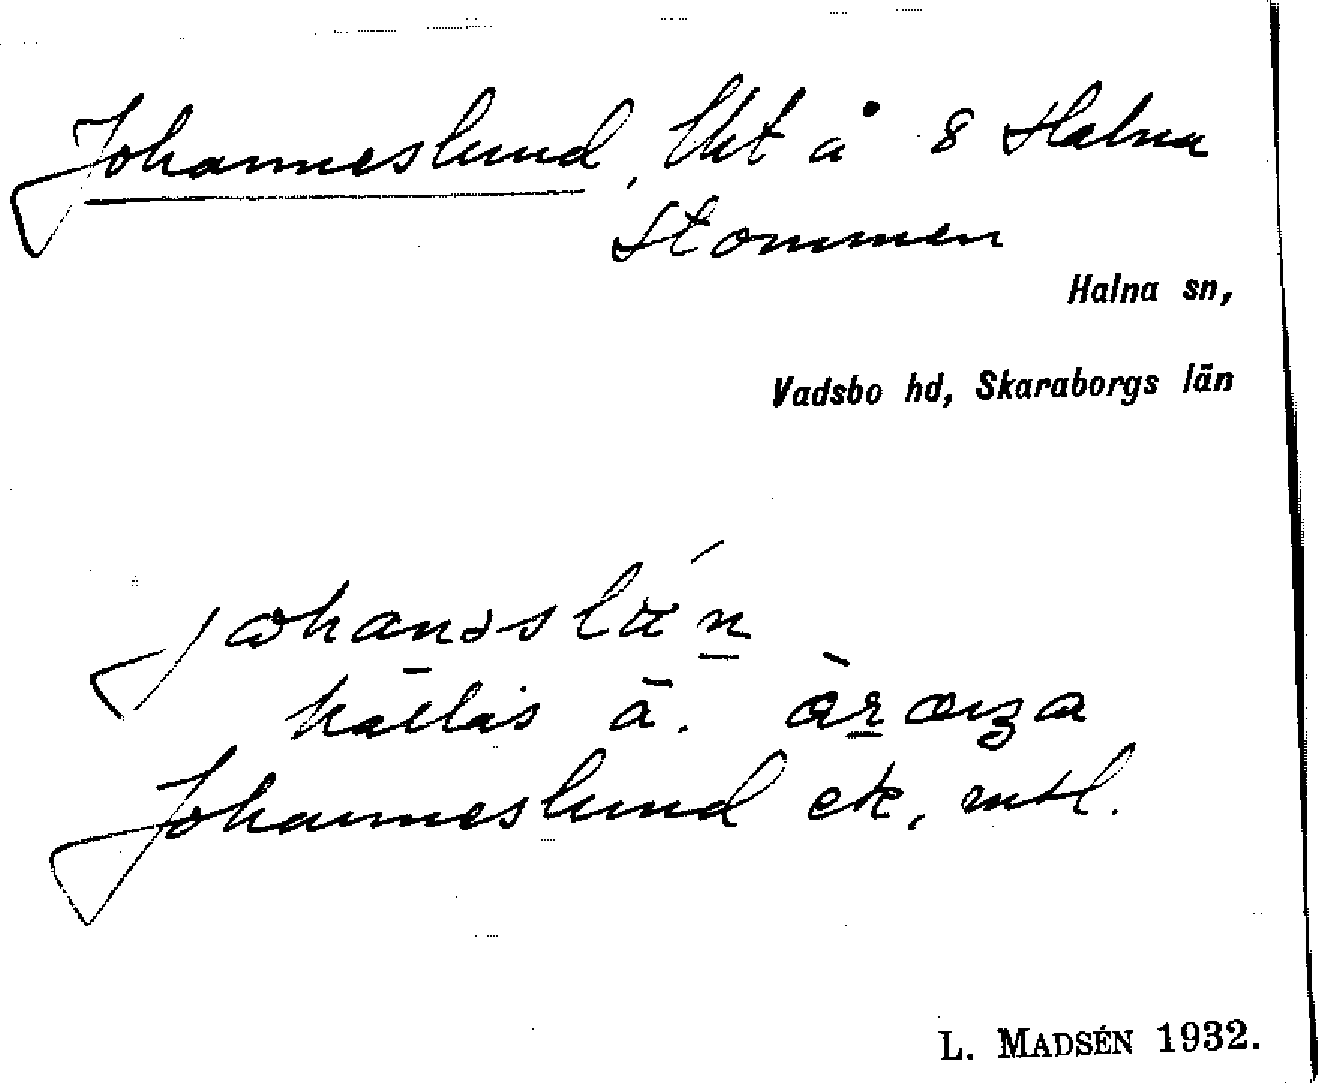 Johanneslund, lht å 8 Halna
Stommen
Halna sn,
Vadsbo hd, Skaraborgs län
kallas ä.
Johanneslund ek, mtl.
L. MADSÉN 1932.